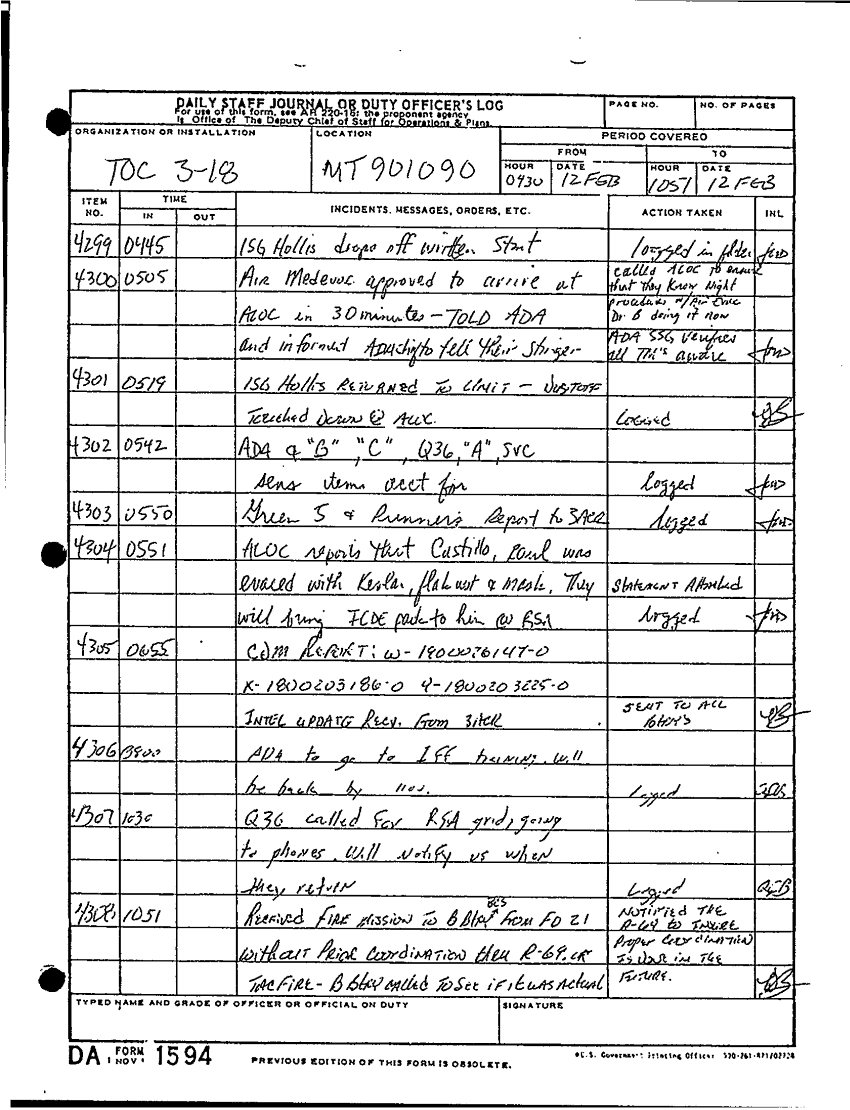 DAILY STAFF JOURNAL OR DUTY OFFICER'S LOG
For use of this form, see AR 220-15; the proponent agency
is Office of The Deputy Chief of Staff for Operations & Plans.
PAGE NO.
NO. OF PAGES
ORGANIZATION OR INSTALLATION
TOC 3-18
LOCATION
MT901090
PERIOD COVERED
FROM
TO
HOUR
0430
DATE
12 FEB
HOUR
1051
DATE
12 FEB
ITEM NO.
TIME
IN
OUT
INCIDENTS, MESSAGES, ORDERS, ETC.
ACTION TAKEN
INL
4299 0445 1SG Hollis drops off written Stmt logged in folder
4300 0505 Air Medevac approved to arrive at
called ALOC to ensure
that they know Night
ALOC in 30 minutes - TOLD ADA
procedures w/Air Evac
Dr B doing it now
and informed ADA to tell their Stinger
ADA SSG verifies
all TM's aware
4301 0519 1SG Hollis RETURNED TO UNIT - DUSTOFF
Touched Down @ ALOC. Logged
4302 0542 ADA & "B" "C", Q36, "A", SVC
sens items acct for logged
4303 0550 Green 5 & Runners Report to 3ACR logged
4304 0551 ALOC reports that Castillo, Paul was
evaced with Kevlar, flak vest & mask. They STATEMENT Attached
will bring ICDE pack to him @ RSA logged
4305 0655 CDM REPORT: W-1900026147-0
X-1800203186-0 Y-1800203225-0
INTEL UPDATE Recv. From 3ACR SENT TO ALL
4306 0900 ADA to go to IFF training. Will
be back by Logged
4307 1030 Q36 called For RSA grid, going
to phones. Will Notify us when
they return Logged
4308 1051 Received FIRE MISSION TO B Btry BCS From FD 21
NOTIFIED THE
R-69 TO INSURE
without PRIOR COORDINATION thru R-69 or
Proper Coordination
IS DONE IN THE
TACFIRE - B Btry called TO See if it was Actual
FUTURE.
TYPED NAME AND GRADE OF OFFICER OR OFFICIAL ON DUTY
SIGNATURE
DA FORM 1 NOV 1594
PREVIOUS EDITION OF THIS FORM IS OBSOLETE.